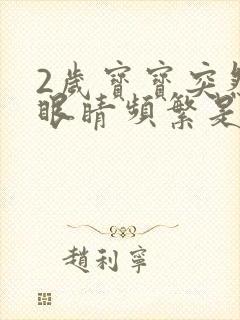 2歲寶寶突
眼睛頻繁是
趙利寧